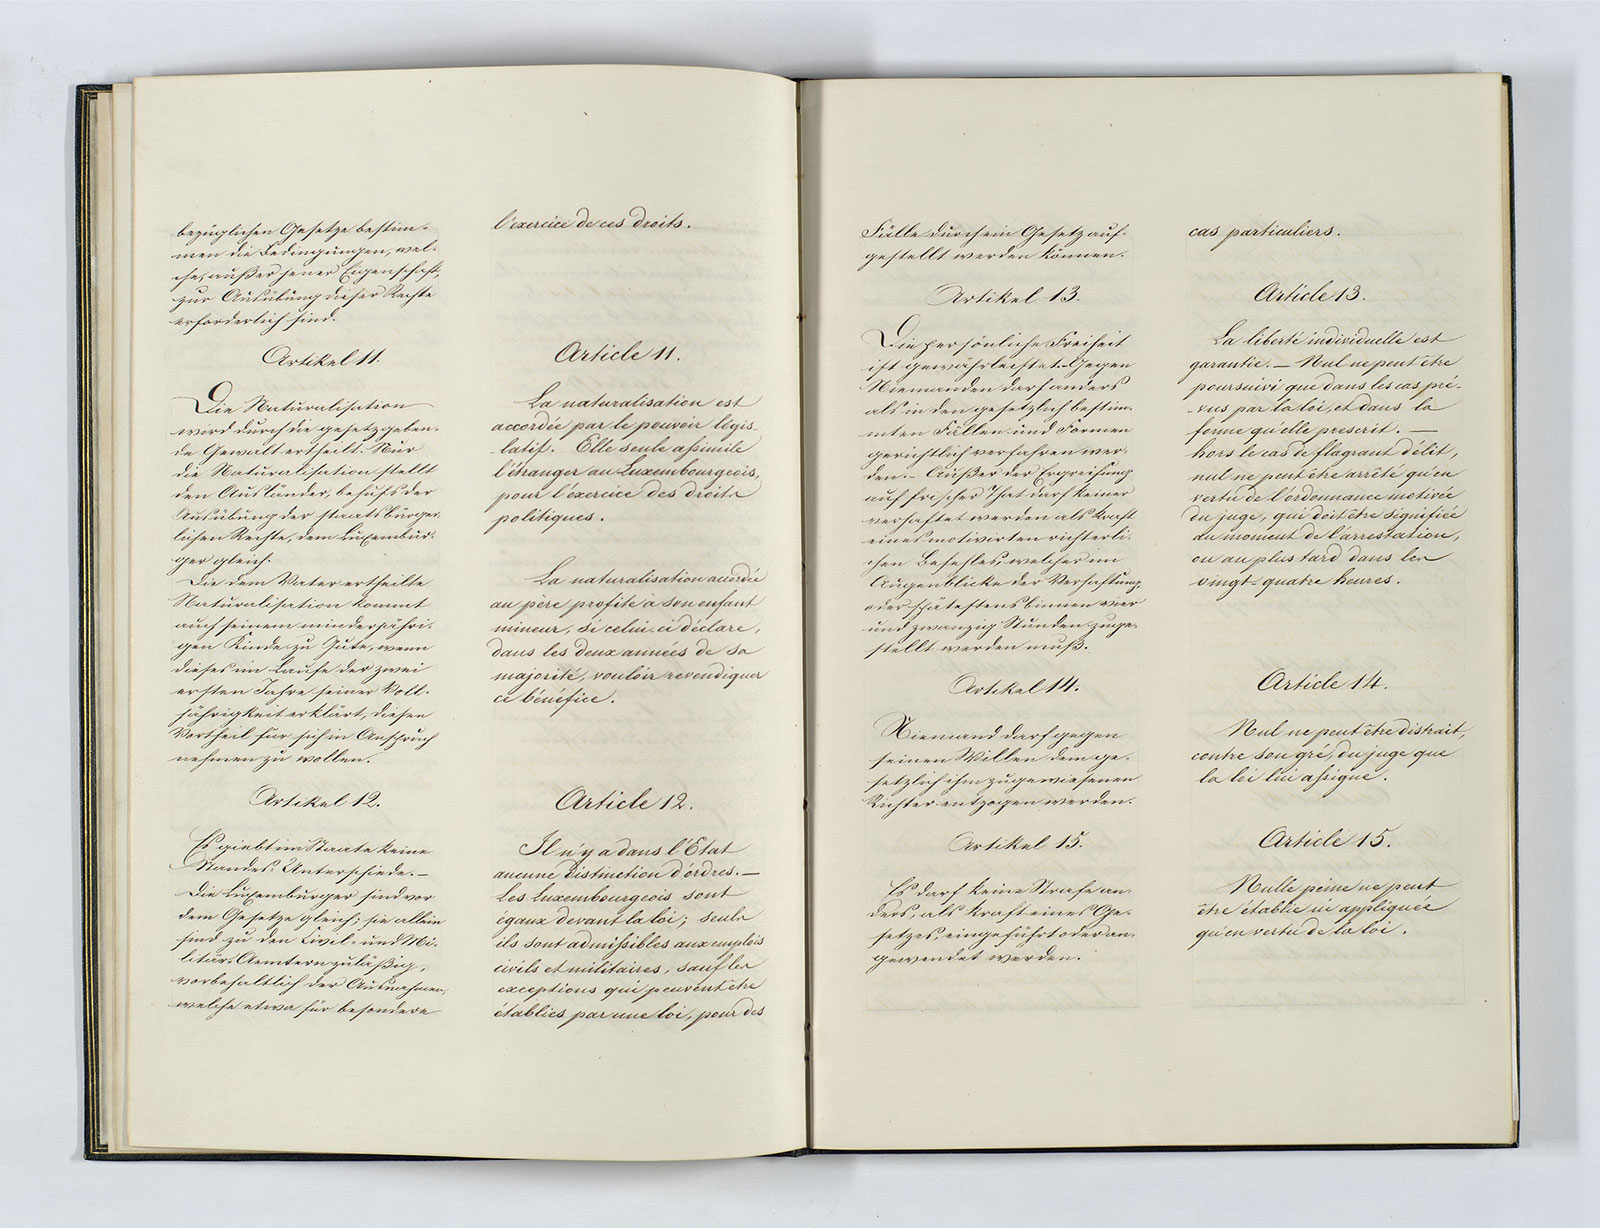 bezüglichen Gesetze bestim-
men die Bedingungen, wel-
che, außer jener Eigenschaft,
zur Ausübung dieser Rechte
erforderlich sind.
Artikel 11.
Die Naturalisation
wird durch die gesetzgeben-
de Gewalt ertheilt. Nur
die Naturalisation stellt
den Ausländer, behufs der
Ausübung der staatsbürger-
lichen Rechte, dem Luxembur-
ger gleich.
Die dem Vater ertheilte
Naturalisation kommt
auch seinem minderjähri-
gen Kinde zu Gute, wenn
dieses im Laufe der zwei
ersten Jahre seiner Voll-
jährigkeit erklärt, diesen
Vortheil für sich in Anspruch
nehmen zu wollen.
Artikel 12.
Es giebt im Staate keine
Standes-Unterschiede. —
Die Luxemburger sind vor
dem Gesetze gleich; sie allein
sind zu den Civil- und Mi-
litär-Aemtern zuläßig,
vorbehaltlich der Ausnahmen,
welche etwa für besondere
l'exercice de ces droits.
Article 11.
La naturalisation est
accordée par le pouvoir légis-
latif. Elle seule assimile
l'étranger au Luxembourgeois,
pour l'exercice des droits
politiques.
La naturalisation accordée
au père profite à son enfant
mineur, si celui-ci déclare,
dans les deux années de sa
majorité, vouloir revendiquer
ce bénéfice.
Article 12.
Il n'y a dans l'Etat
aucune distinction d'ordres. —
Les Luxembourgeois sont
égaux devant la loi; seuls
ils sont admissibles aux emplois
civils et militaires, sauf les
exceptions qui peuvent être
établies par une loi, pour des
Fälle durch ein Gesetz auf-
gestellt werden können.
Artikel 13.
Die persönliche Freiheit
ist gewährleistet. — Gegen
Niemanden darf anders
als in den gesetzlich bestim-
mten Fällen und Formen
gerichtlich verfahren wer-
den. — Außer der Ergreifung
auf frischer That darf keiner
verhaftet werden als kraft
eines motivirten richterli-
chen Befehles, welcher im
Augenblicke der Verhaftung,
oder spätestens binnen vier
und zwanzig Stunden zuge-
stellt werden muß.
Artikel 14.
Niemand darf gegen
seinen Willen dem ge-
setzlich ihm zugewiesenen
Richter entzogen werden.
Artikel 15.
Es darf keine Strafe an-
ders, als kraft eines Ge-
setzes, eingeführt oder an-
gewendet werden.
cas particuliers.
Article 13.
La liberté individuelle est
garantie. — Nul ne peut être
poursuivi que dans les cas pré-
-vus par la loi, et dans la
forme qu'elle prescrit. —
hors le cas de flagrant délit,
nul ne peut être arrêté qu'en
vertu de l'ordonnance motivée
du juge, qui doit être signifiée
au moment de l'arrestation,
ou au plus tard dans les
vingt-quatre heures.
Article 14.
Nul ne peut être distrait,
contre son gré, du juge que
la loi lui assigne.
Article 15.
Nulle peine ne peut
être établie ni appliquée
qu'en vertu de la loi.